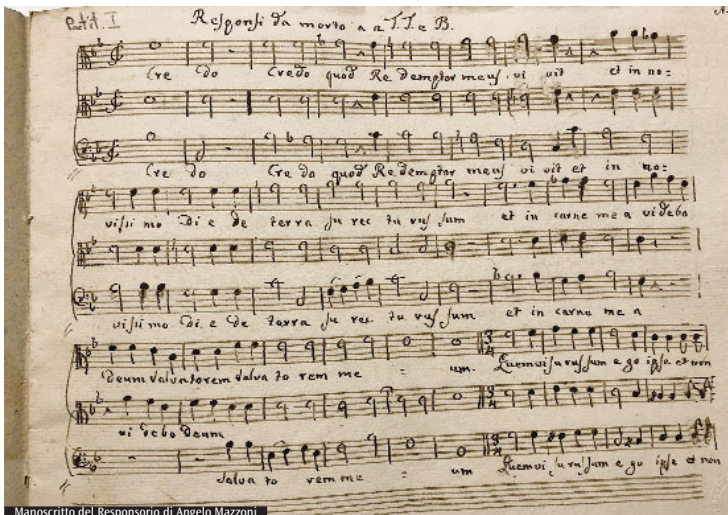 Partit. I
Responsi da morto a 2 T.T. e B.
Cre do Credo quod Re demptor meus, vi vit et in no=
Cre do Cre do quod Re demptor meus vi vit et in no=
vissi mo Di e de terra su rec tu rus sum et in carne me a videbo
vissi mo Di e De terra su rec tu rus sum et in carne me a
Deum salvatorem salva to rem me = um. Quem visu rus sum e go ipse et non
vi debo Deum
salva to rem me = um Quem visu rus sum e go ipse et non
Manoscritto del Responsorio di Angelo Mazzoni